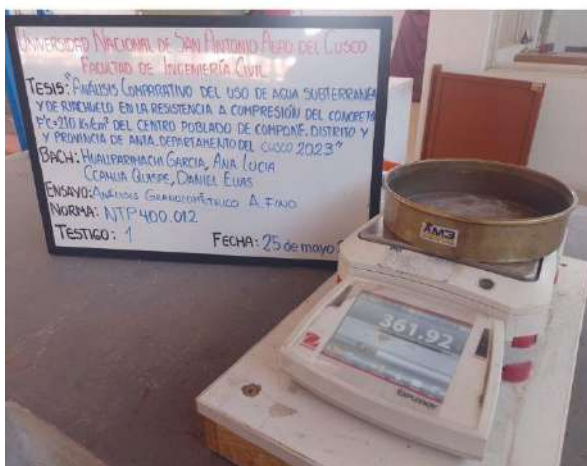 UNIVERSIDAD NACIONAL DE SAN ANTONIO ABAD DEL CUSCO
FACULTAD DE INGENIERÍA CIVIL
TESIS: "ANÁLISIS COMPARATIVO DEL USO DE AGUA SUBTERRANEA
Y DE RIACHUELO EN LA RESISTENCIA A COMPRESIÓN DEL CONCRETO
F'C=210 KG/CM² DEL CENTRO POBLADO DE COMPONE, DISTRITO Y
Y PROVINCIA DE ANTA, DEPARTAMENTO DEL CUSCO 2023"
BACH: HUALLPARIMACHI GARCIA, ANA LUCIA
CCAHUA QUISPE, DANIEL ELIAS
ENSAYO: ANÁLISIS GRANULOMÉTRICO A. FINO
NORMA: NTP 400.012
TESTIGO: 1
FECHA: 25 de mayo
361.92
EXPLORER